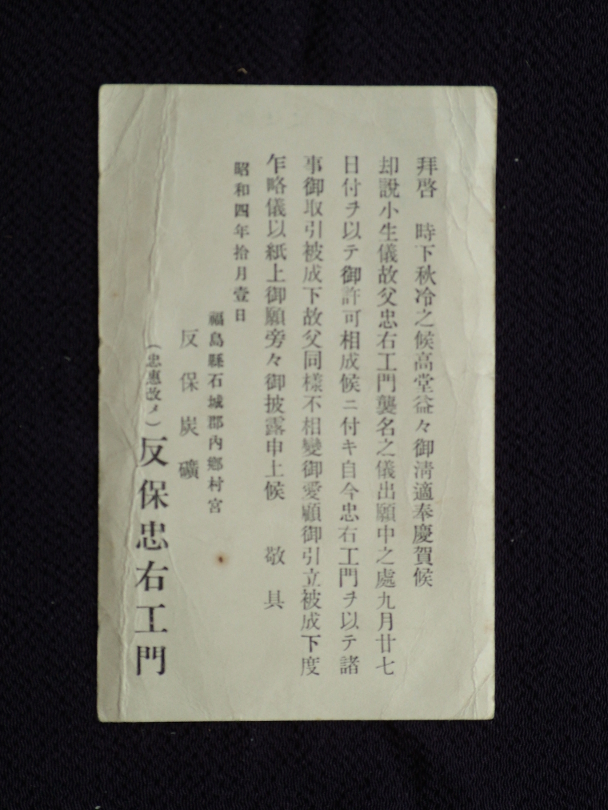 拜啓　時下秋冷之候高堂益々御淸適奉慶賀候
却說小生儀故父忠右工門襲名之儀出願中之處九月廿七
日付ヲ以テ御許可相成候ニ付キ自今忠右工門ヲ以テ諸
事御取引被成下故父同樣不相變御愛顧御引立被成下度
乍略儀以紙上御願旁々御披露申上候　敬具
昭和四年拾月壹日
福島縣石城郡內鄕村宮
反保炭礦
（忠惠改メ）反保忠右工門